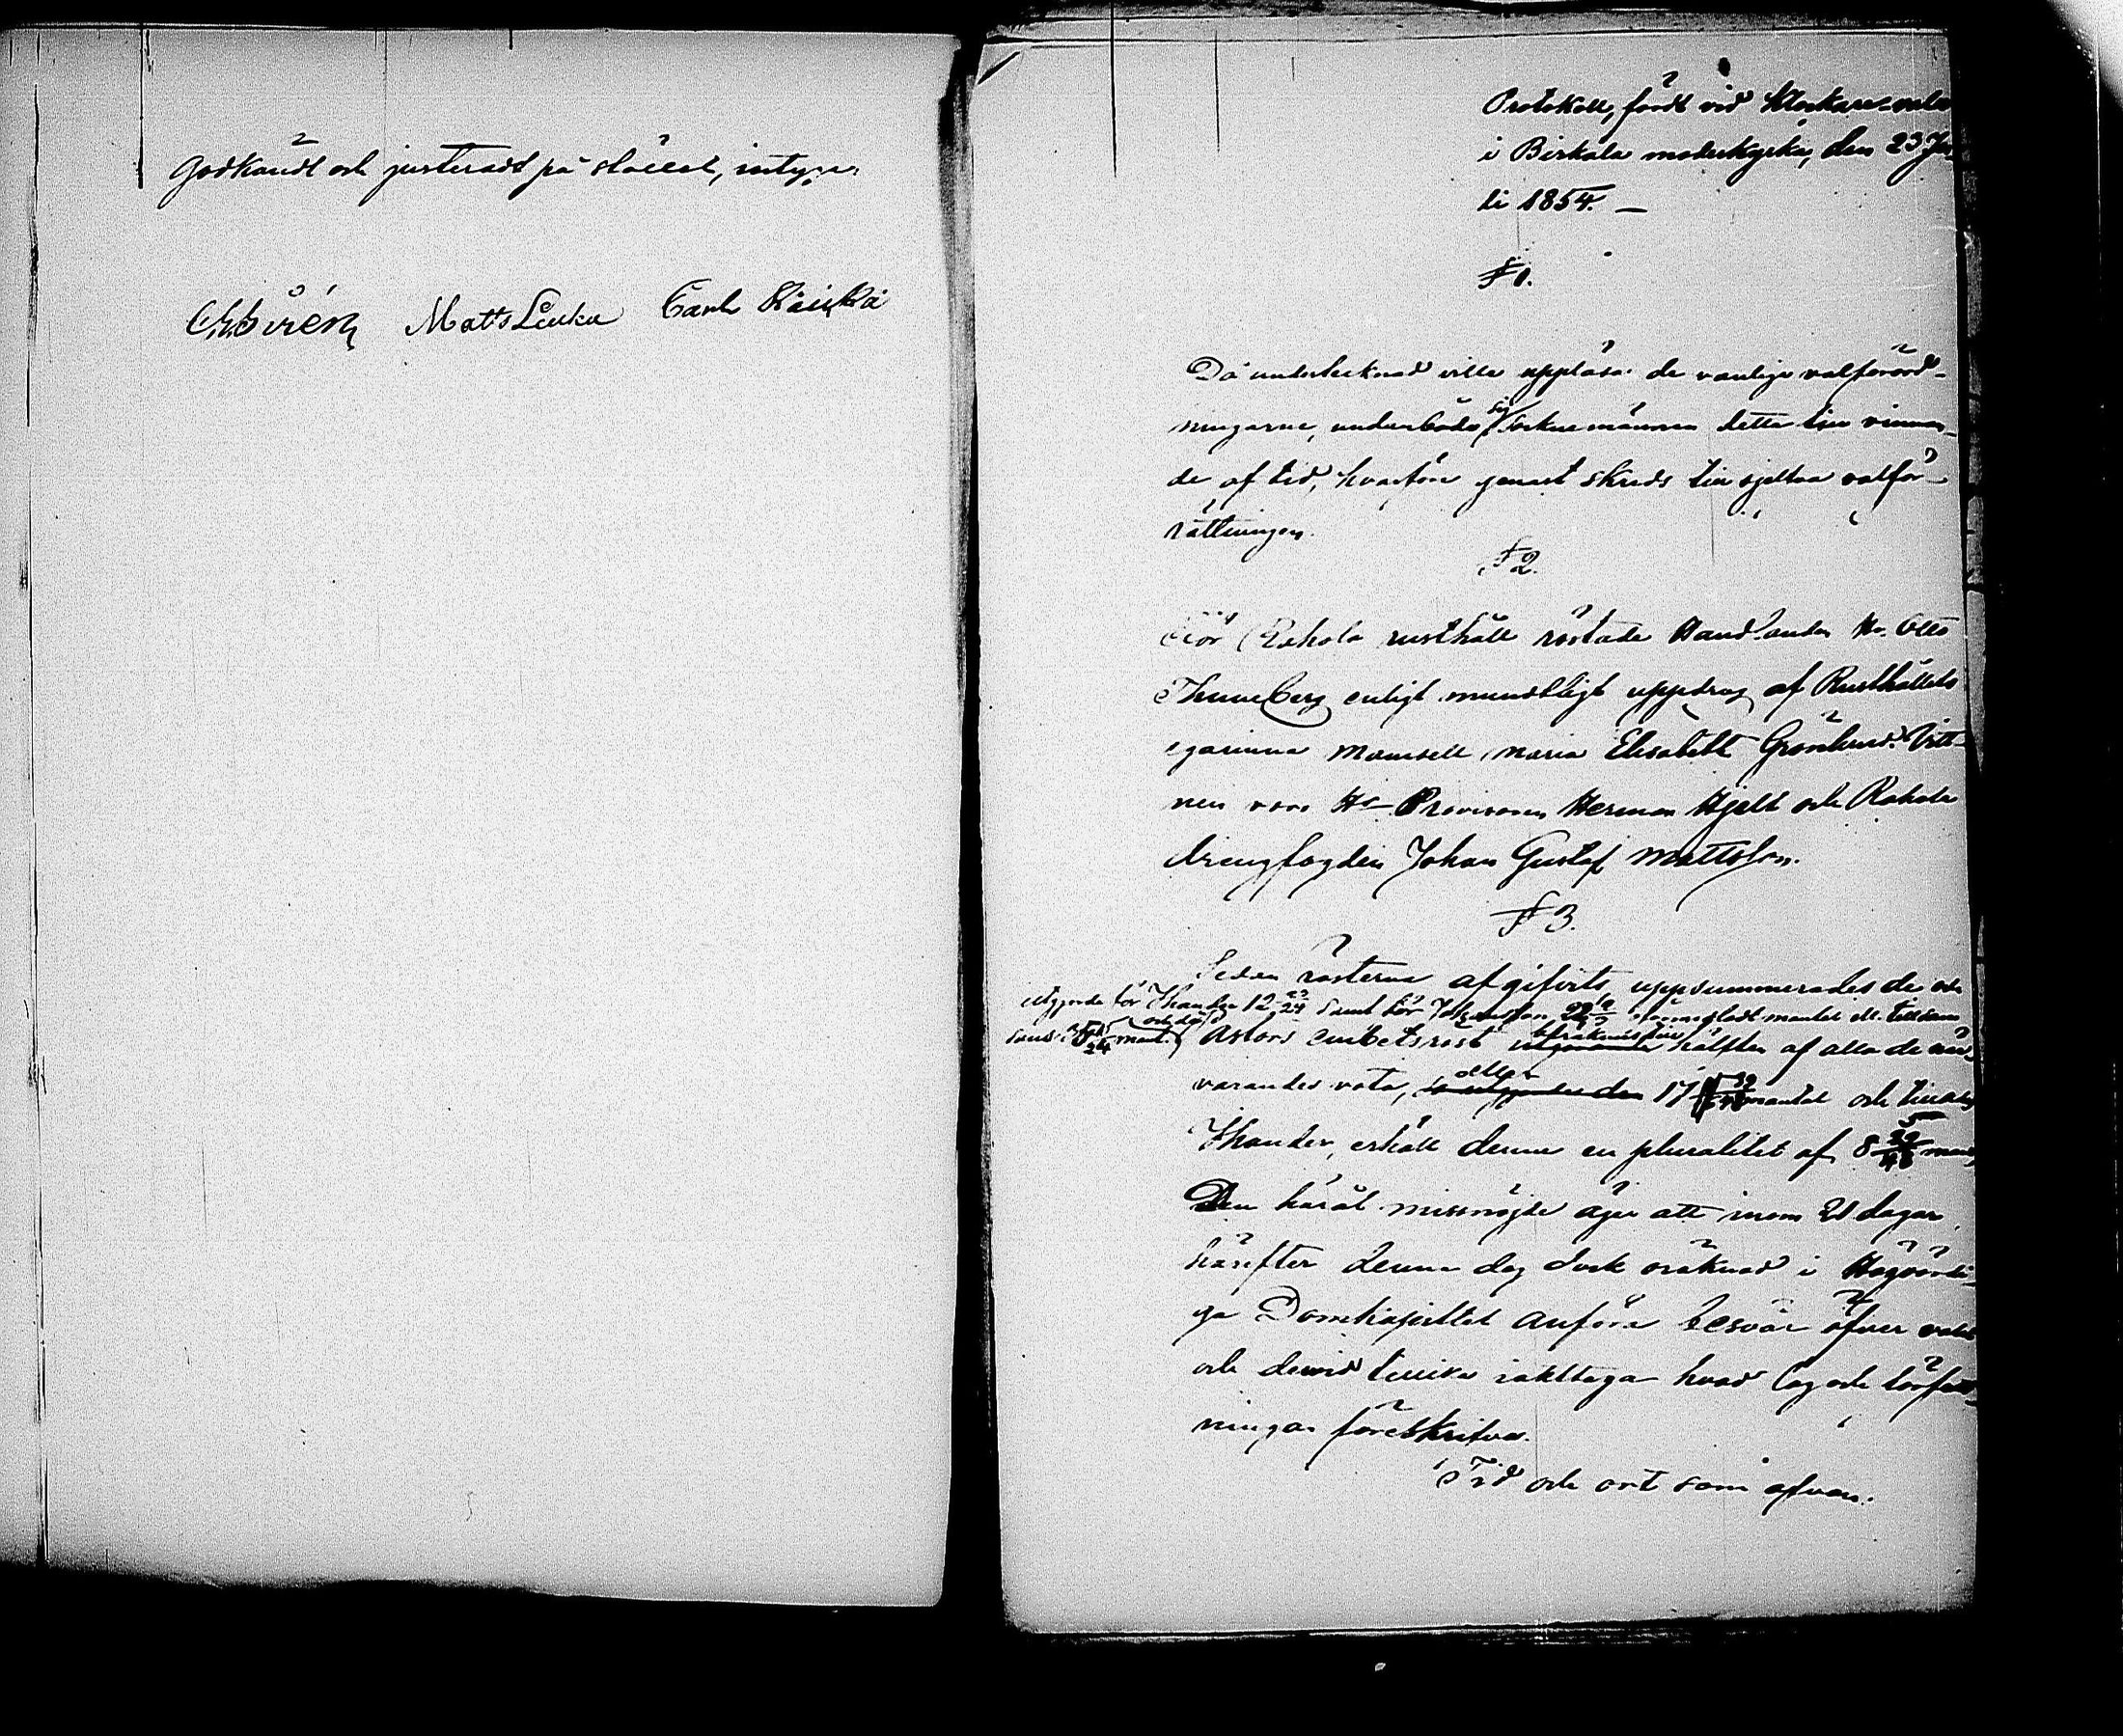 Godkändt och justeradt på stället, intyga
Matts Leuku Carl
Protokoll, fördt vid klockare-valet
i Birkala moderkyrka, den 23 Ju
li 1854. —
§ 1.
Då undertecknad ville uppläsa de vanliga valförord-
ningarne, undanbådo sig Socknemännen detta till vinnan-
de af tid, hvarföre genast skreds till sjelfva valför-
rättningen.
§ 2.
För rusthåll röstade Handlanden Hr. Otto
Thuneberg enligt mundtligt uppdrag af Rusthållets
egarinna Mamsell Maria Elisabeth Grönlund. Vitt-
nen voro Hr Provisoren Herman Hjelt och
drengfogden Johan Gustaf Mattsson.
§ 3.
Sedan rösterna afgifvits, uppsummerades de och
utgjorde för Ikander 12 samt för mantal ell. tillsam
mant. och då Pastors embetsröst hälften af alla de när-
varandes vota, eller 17 mantal och
Ikander, erhöll denne en pluralitet af 8 mant.
Den häråt missnöjde äger att inom 21 dagar
härefter denna dag dock oräknad i Högvördi-
ga Domkapitlet anföra besvär öfver valet
och dervid tillika iakttaga hvad lag och författ-
ningar föreskrifva.
Tid och ort som ofvan.